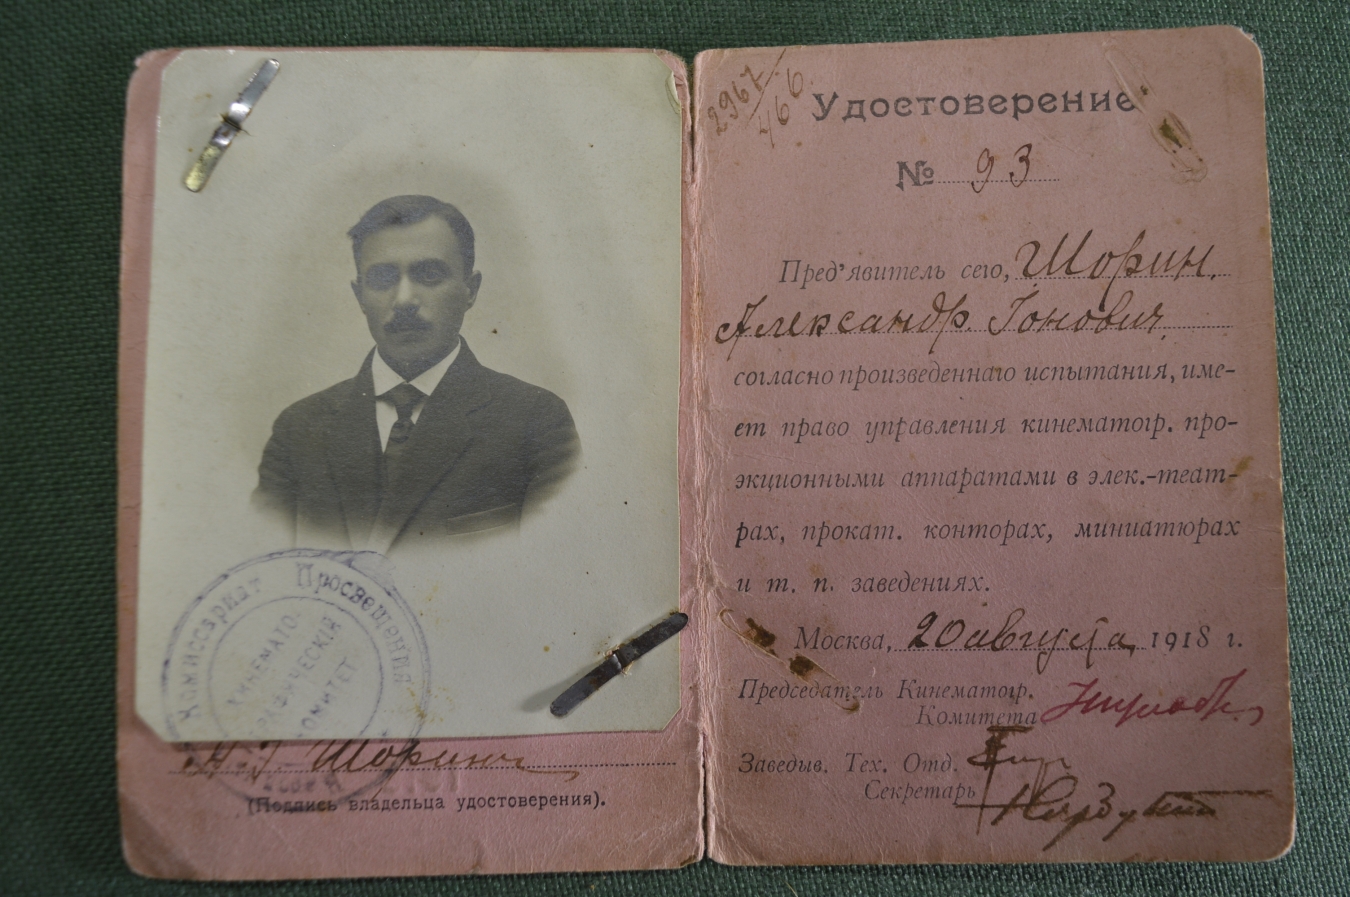 Комиссариат Просвещения
КИНЕМАТО-
ГРАФИЧЕСКІЙ
КОМИТЕТ
А І Шоринъ
(Подпись владельца удостоверения).
2967/466
Удостоверение
№ 93
Пред’явитель сего, Шорин,
Александр Іонович
согласно произведеннаго испытания, име-
ет право управления кинематогр. про-
экционными аппаратами в элек.-театт-
рах, прокат. конторах, миниатюрах
и т. п. заведениях.
Москва, 20 августа 1918 г.
Председатель Кинематогр.
Комитета
Заведыв. Тех. Отд.
Секретарь